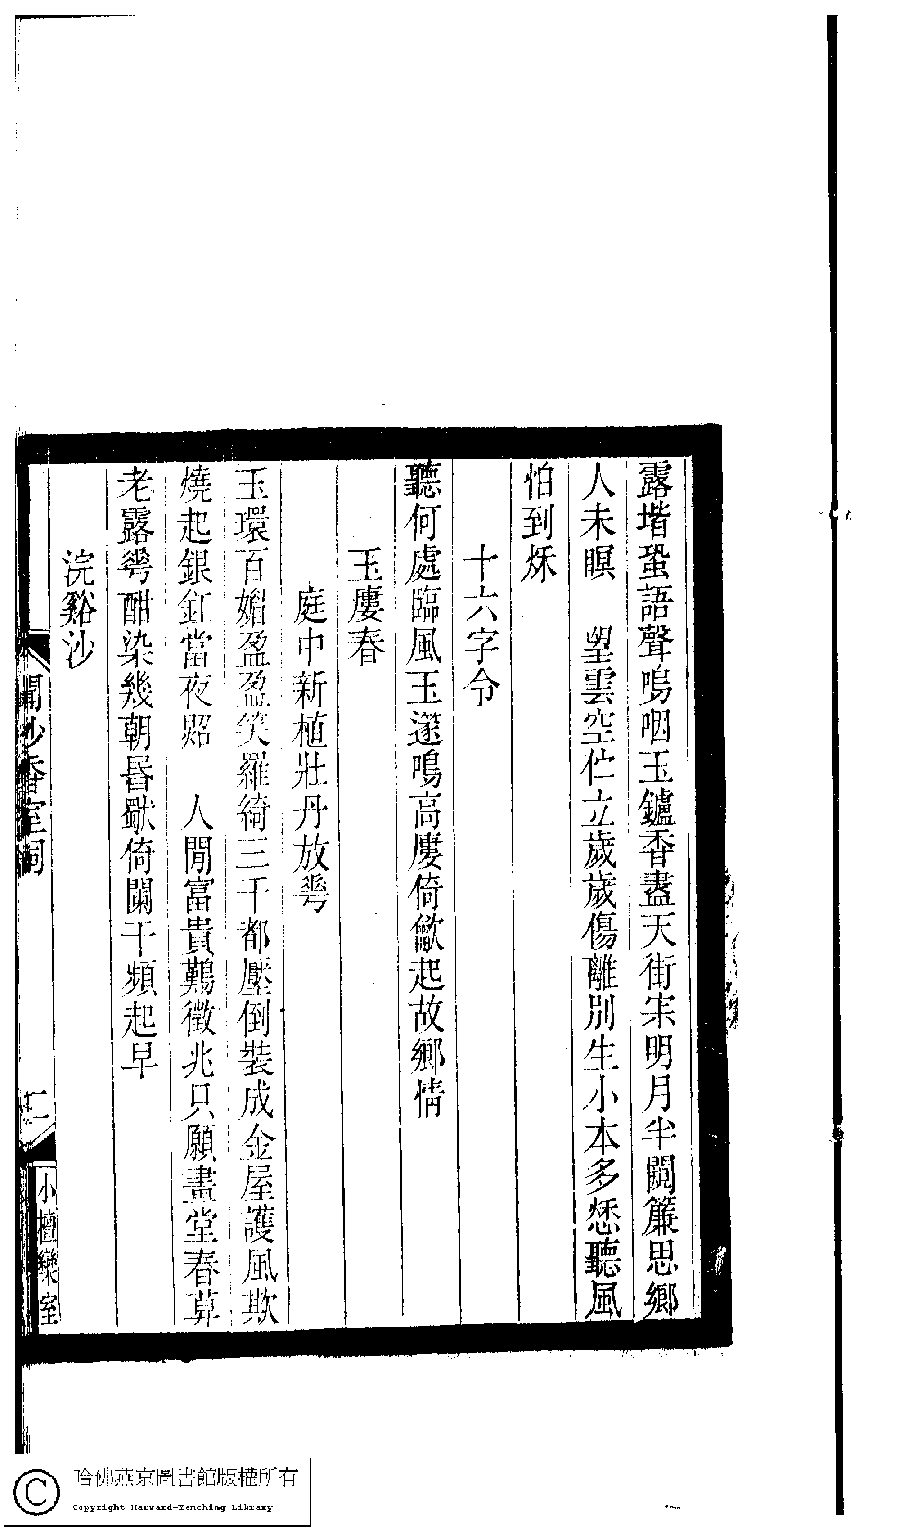 露堦蛩語聲嗚咽玉鑪香盡天街宋明月半闌簾思鄉
人未瞑　朢雲空伫立歲歲傷離別生小本多愁聽風
怕到烌
十六字令
聽何處臨風玉邃鳴高廔倚歗起故鄉情
玉廔春
庭中新植壯丹放蕚
玉環百媚盈盈笑羅綺三千都壓倒裝成金屋護風欺
燒起銀釭當夜照　人閒富貴鷬徵兆只願畫堂春莫
老露蕚酣染幾朝昬歞倚闌干頻起早
浣谿沙
聞妙香室詞
二
小檀欒室
哈佛燕京圖書館版權所有
Copyright Harvard-Yenching Library